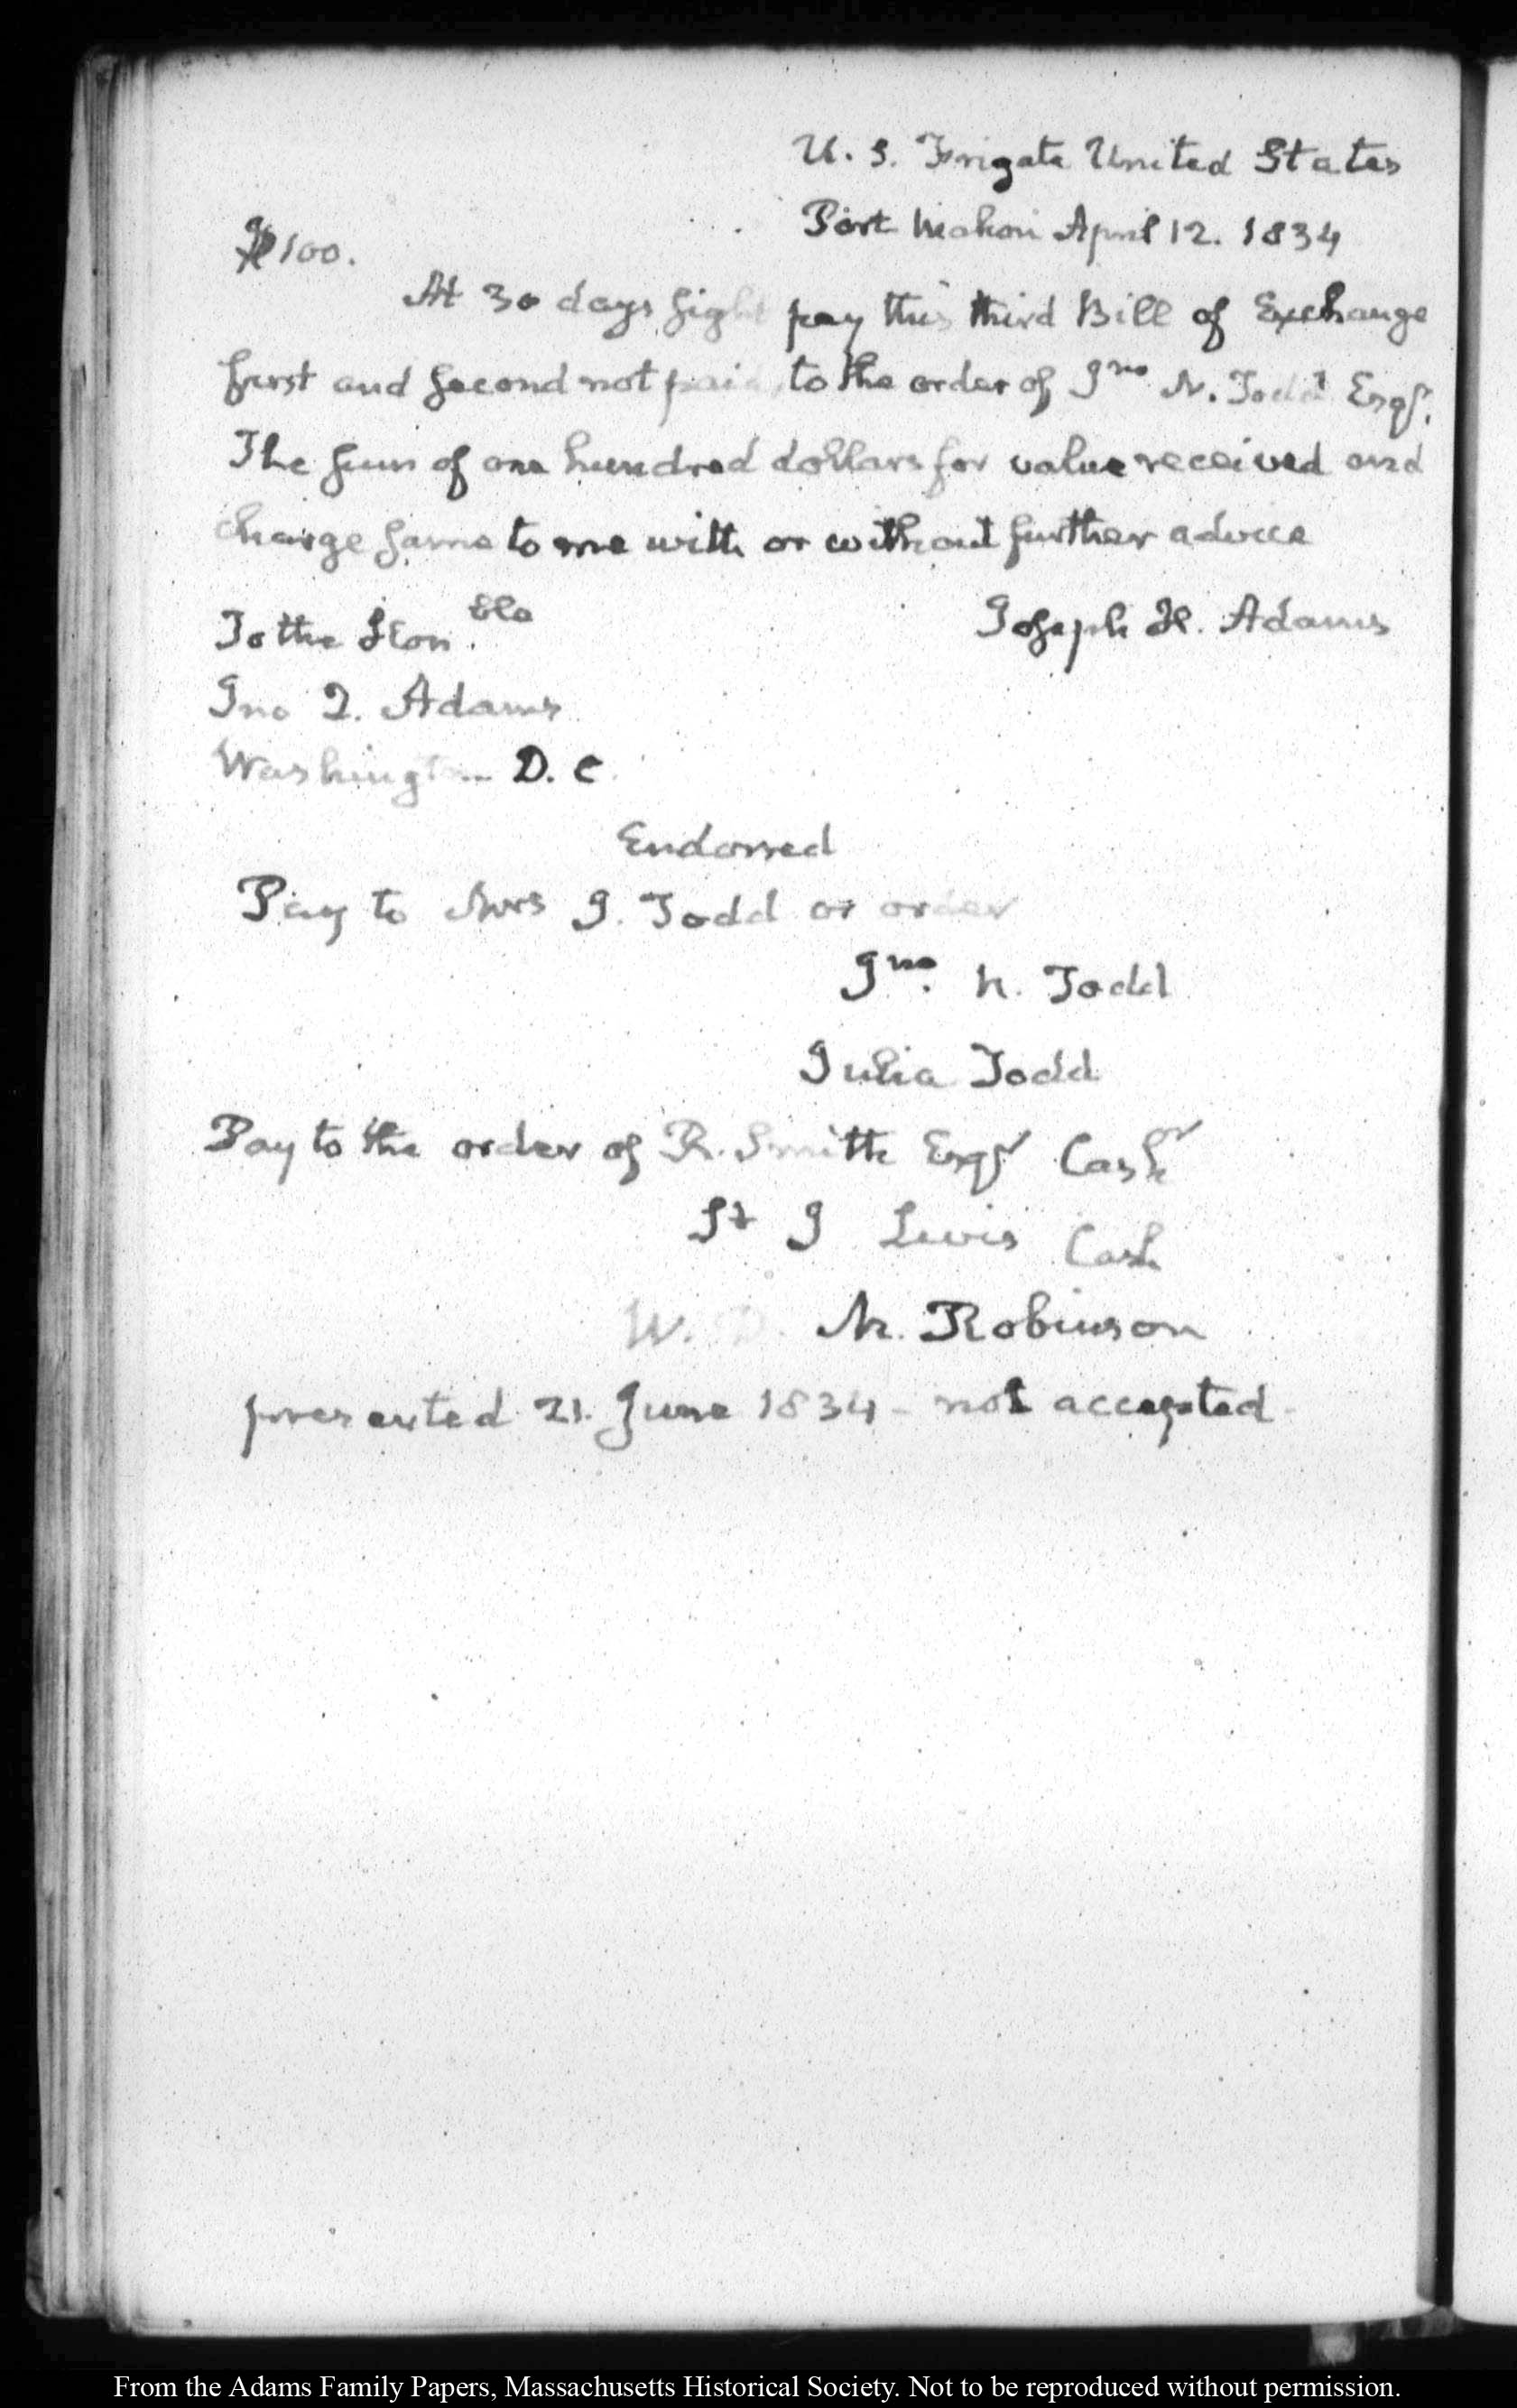 U. S. Frigate United States
Port Mahon April 12. 1834
$100.
At 30 days sight pay this third Bill of Exchange
first and second not paid, to the order of Jno N. Todd Esqr.
The sum of one hundred dollars for value received and
charge same to me with or without further advice
Joseph H. Adams
To the Hon.ble
Jno Q. Adams
Washington D. C.
Endorsed
Pay to Mrs J. Todd or order
Jno. N. Todd
Julia Todd
Pay to the order of R. Smith Esqr Cashr
J Lewis Cash
W. D. M. Robinson
presented 21. June 1834 - not accepted -
From the Adams Family Papers, Massachusetts Historical Society. Not to be reproduced without permission.